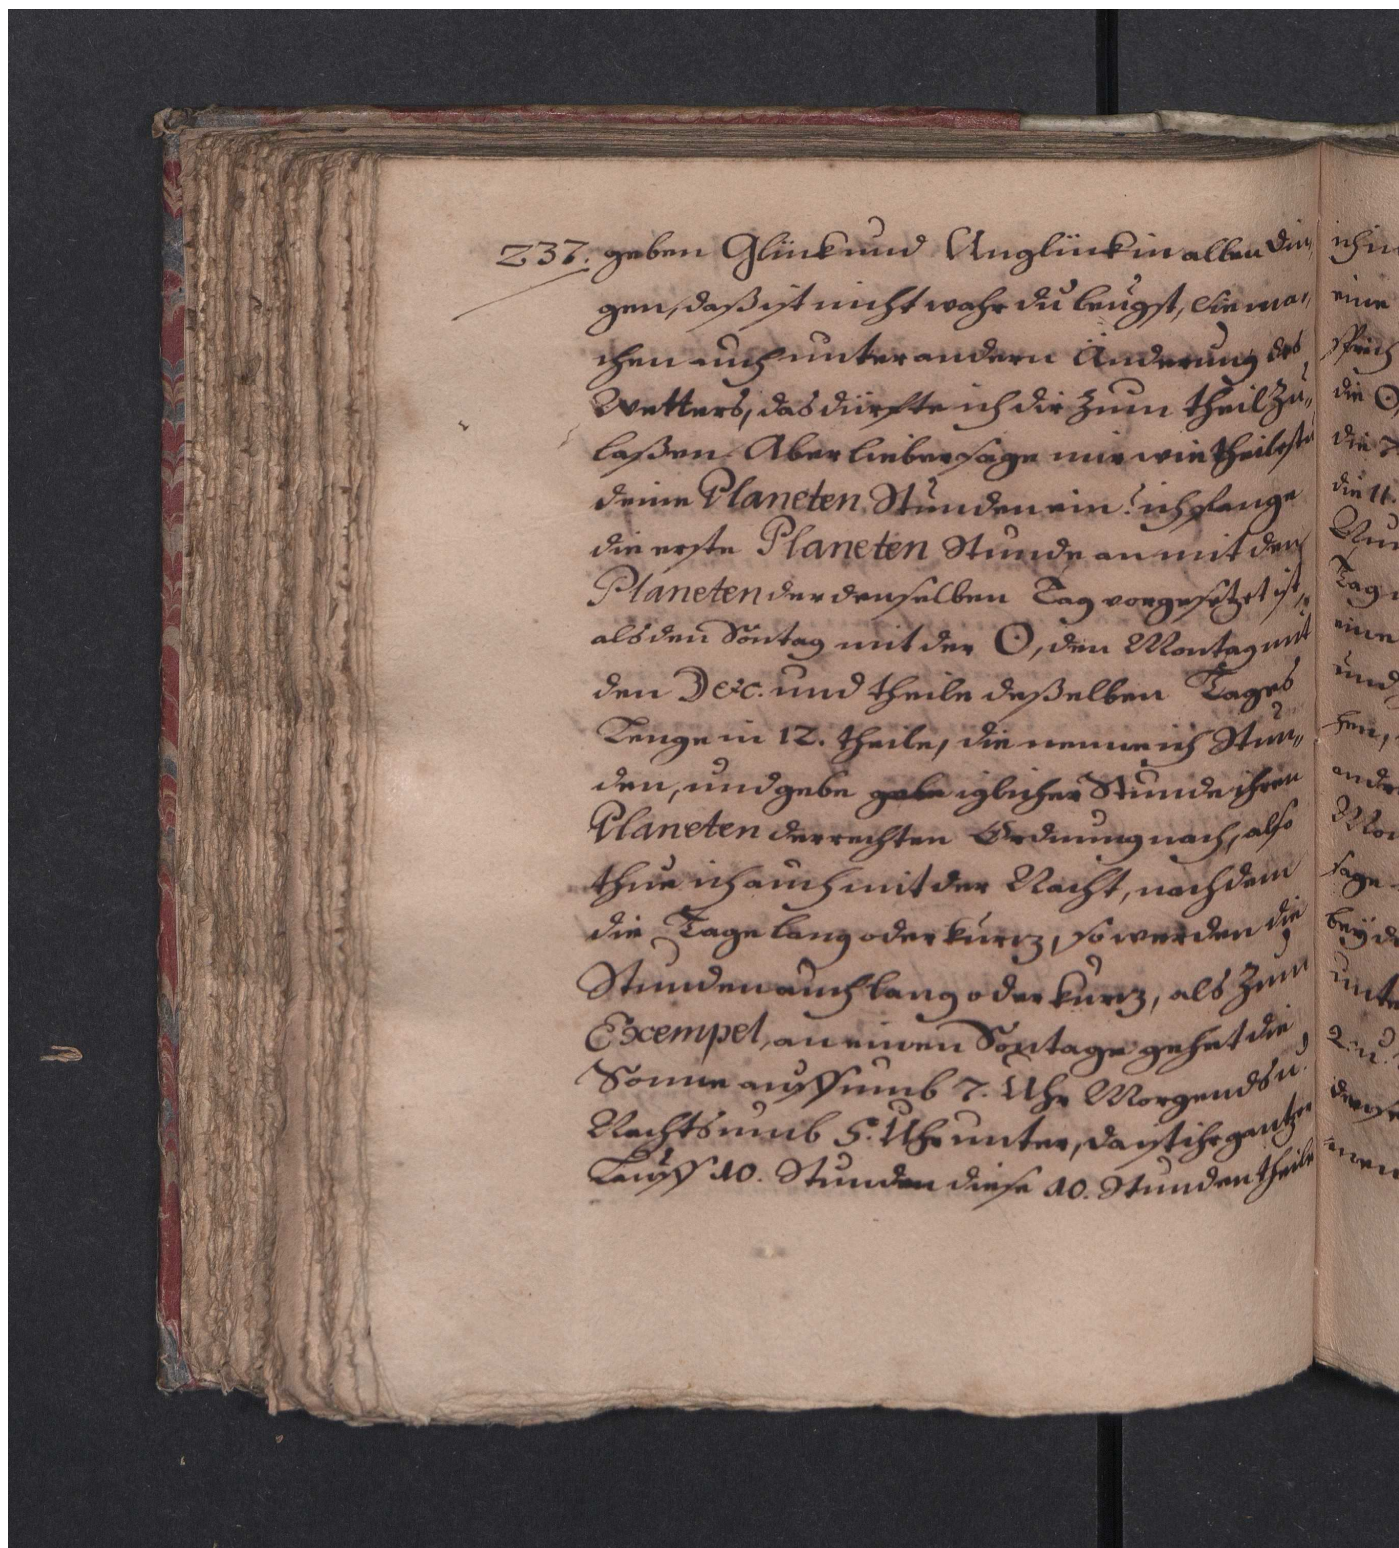 237. geben Glück und Unglück in allen Din„
gen, daß ist nicht wahr du leugst, sie ma„
chen auch unter andern Änderung des
Wetters, das dürfte ich dir zum theil zu„
laßen. Aber lieber sage mir wie theilestu
deine Planeten Stunden ein? ich fange
die erste Planeten Stunde an mit den
Planeten der denselben Tag vorgesetzet ist,
als den Sontag mit der ☉, den Montag mit
den ☽ &c. und theile deßelben Tages
Lenge in 12. theile, die nenne ich Stun„
den, und gebe gebe iglicher Stunde ihren
Planeten der rechten Ordnung nach, also
thue ich auch mit der Nacht, nachdem
die Tage lang oder kurtz, so werden die
Stunden auch lang oder kurtz, als zum
Exempel, an einen Sontage gehet die
Sonne auff umb 7. Uhr Morgends u.
Nachts umb 5. Uhr unter, da ist ihr gantzer
Lauff 10. Stunden diese 10. Stunden theile